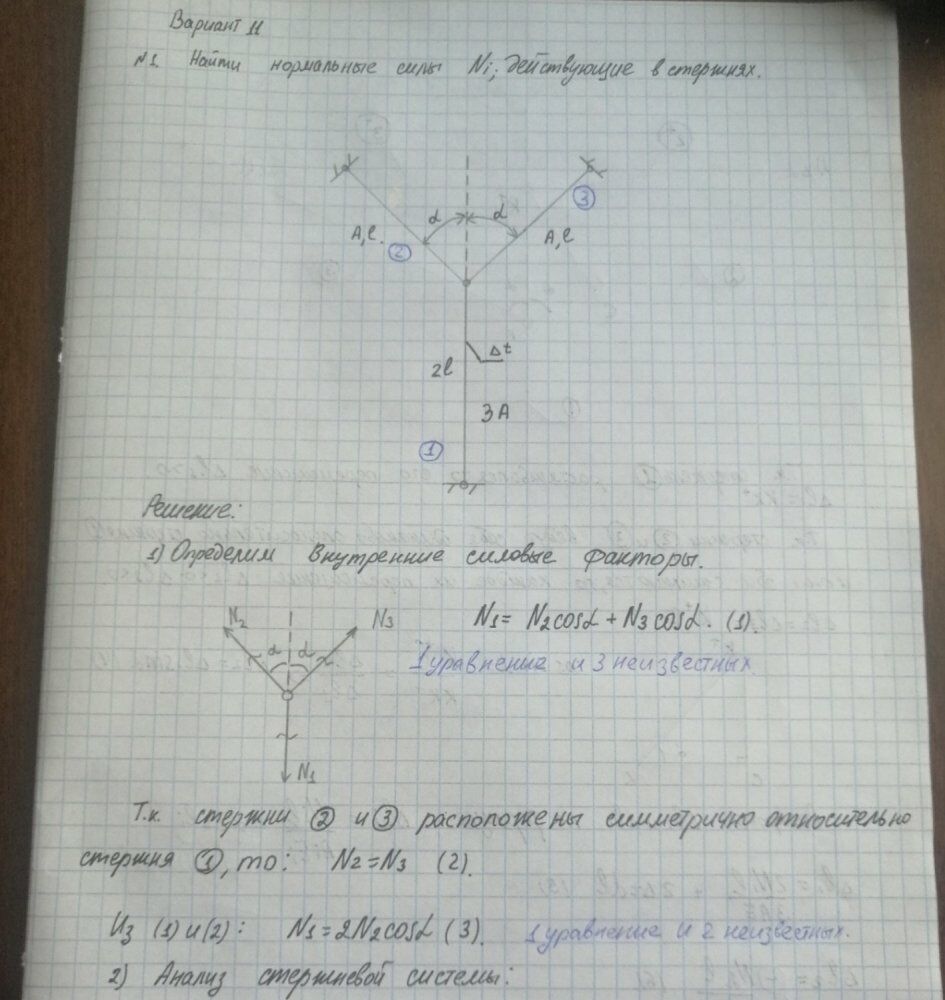 Вариант 11
№1. Найти нормальные силы Ni, действующие в стержнях.
α α
3
A, l.
2
A, l
Δt
2l
3A
1
Решение:
1) Определим внутренние силовые факторы.
N2 N3
N1 = N2cosα + N3cosα. (1).
α α
1 уравнение и 3 неизвестных.
N1
Т.к. стержни 2 и 3 расположены симметрично относительно
стержня 1, то: N2 = N3 (2).
Из (1) и (2): N1 = 2N2cosα (3). 1 уравнение и 2 неизвестных.
2) Анализ стержневой системы: